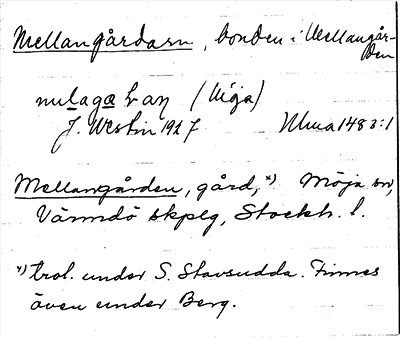 Mellangårdarn, bonden i Mellangår-
den
(Möja)
J. Westin 1927 Ulma 148 3:1
Mellangården, gård,*) Möja sn,
Värmdö skplg, Stockh. l.
*) trol. under S. Stavsudda. Finnes
även under Berg.